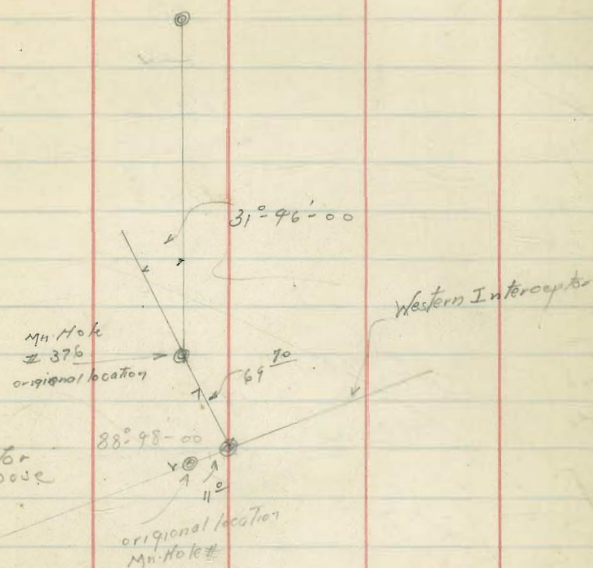 31°-46'-00
Western Interceptor
Mn. Hole
# 376
origional location
69 70
88°-48-00
for
11 0
origional location
Mn. Hole #